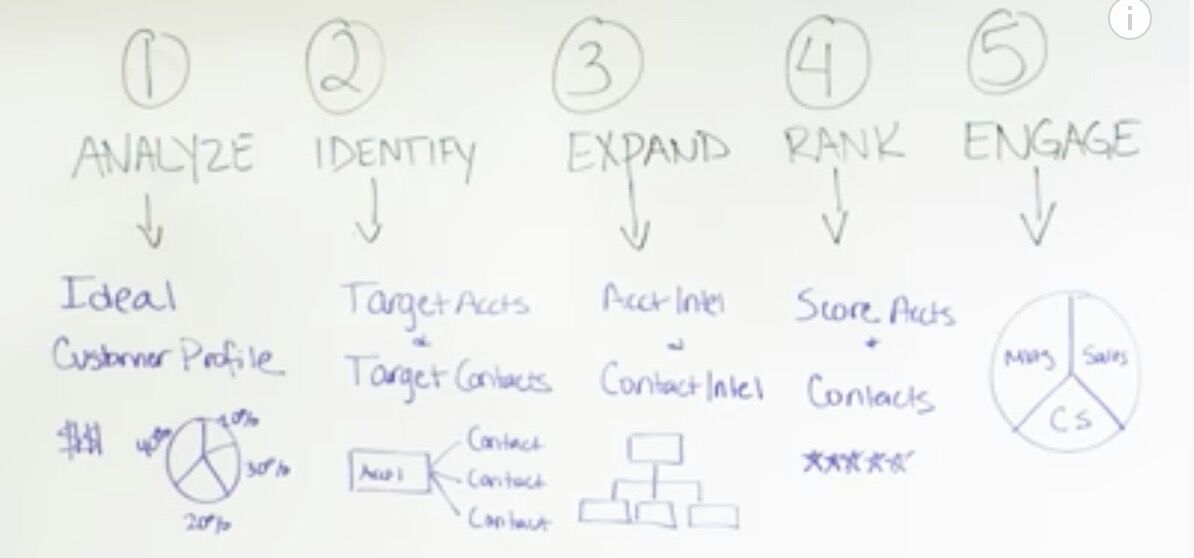 1
ANALYZE
Ideal
Customer Profile
$$$
40%
10%
30%
20%
2
IDENTIFY
Target Accts
&
Target Contacts
Acct 1
Contact
Contact
Contact
3
EXPAND
Acct Intel
Contact Intel
4
RANK
Score Accts
+
Contacts
5
ENGAGE
Mktg
Sales
CS
i